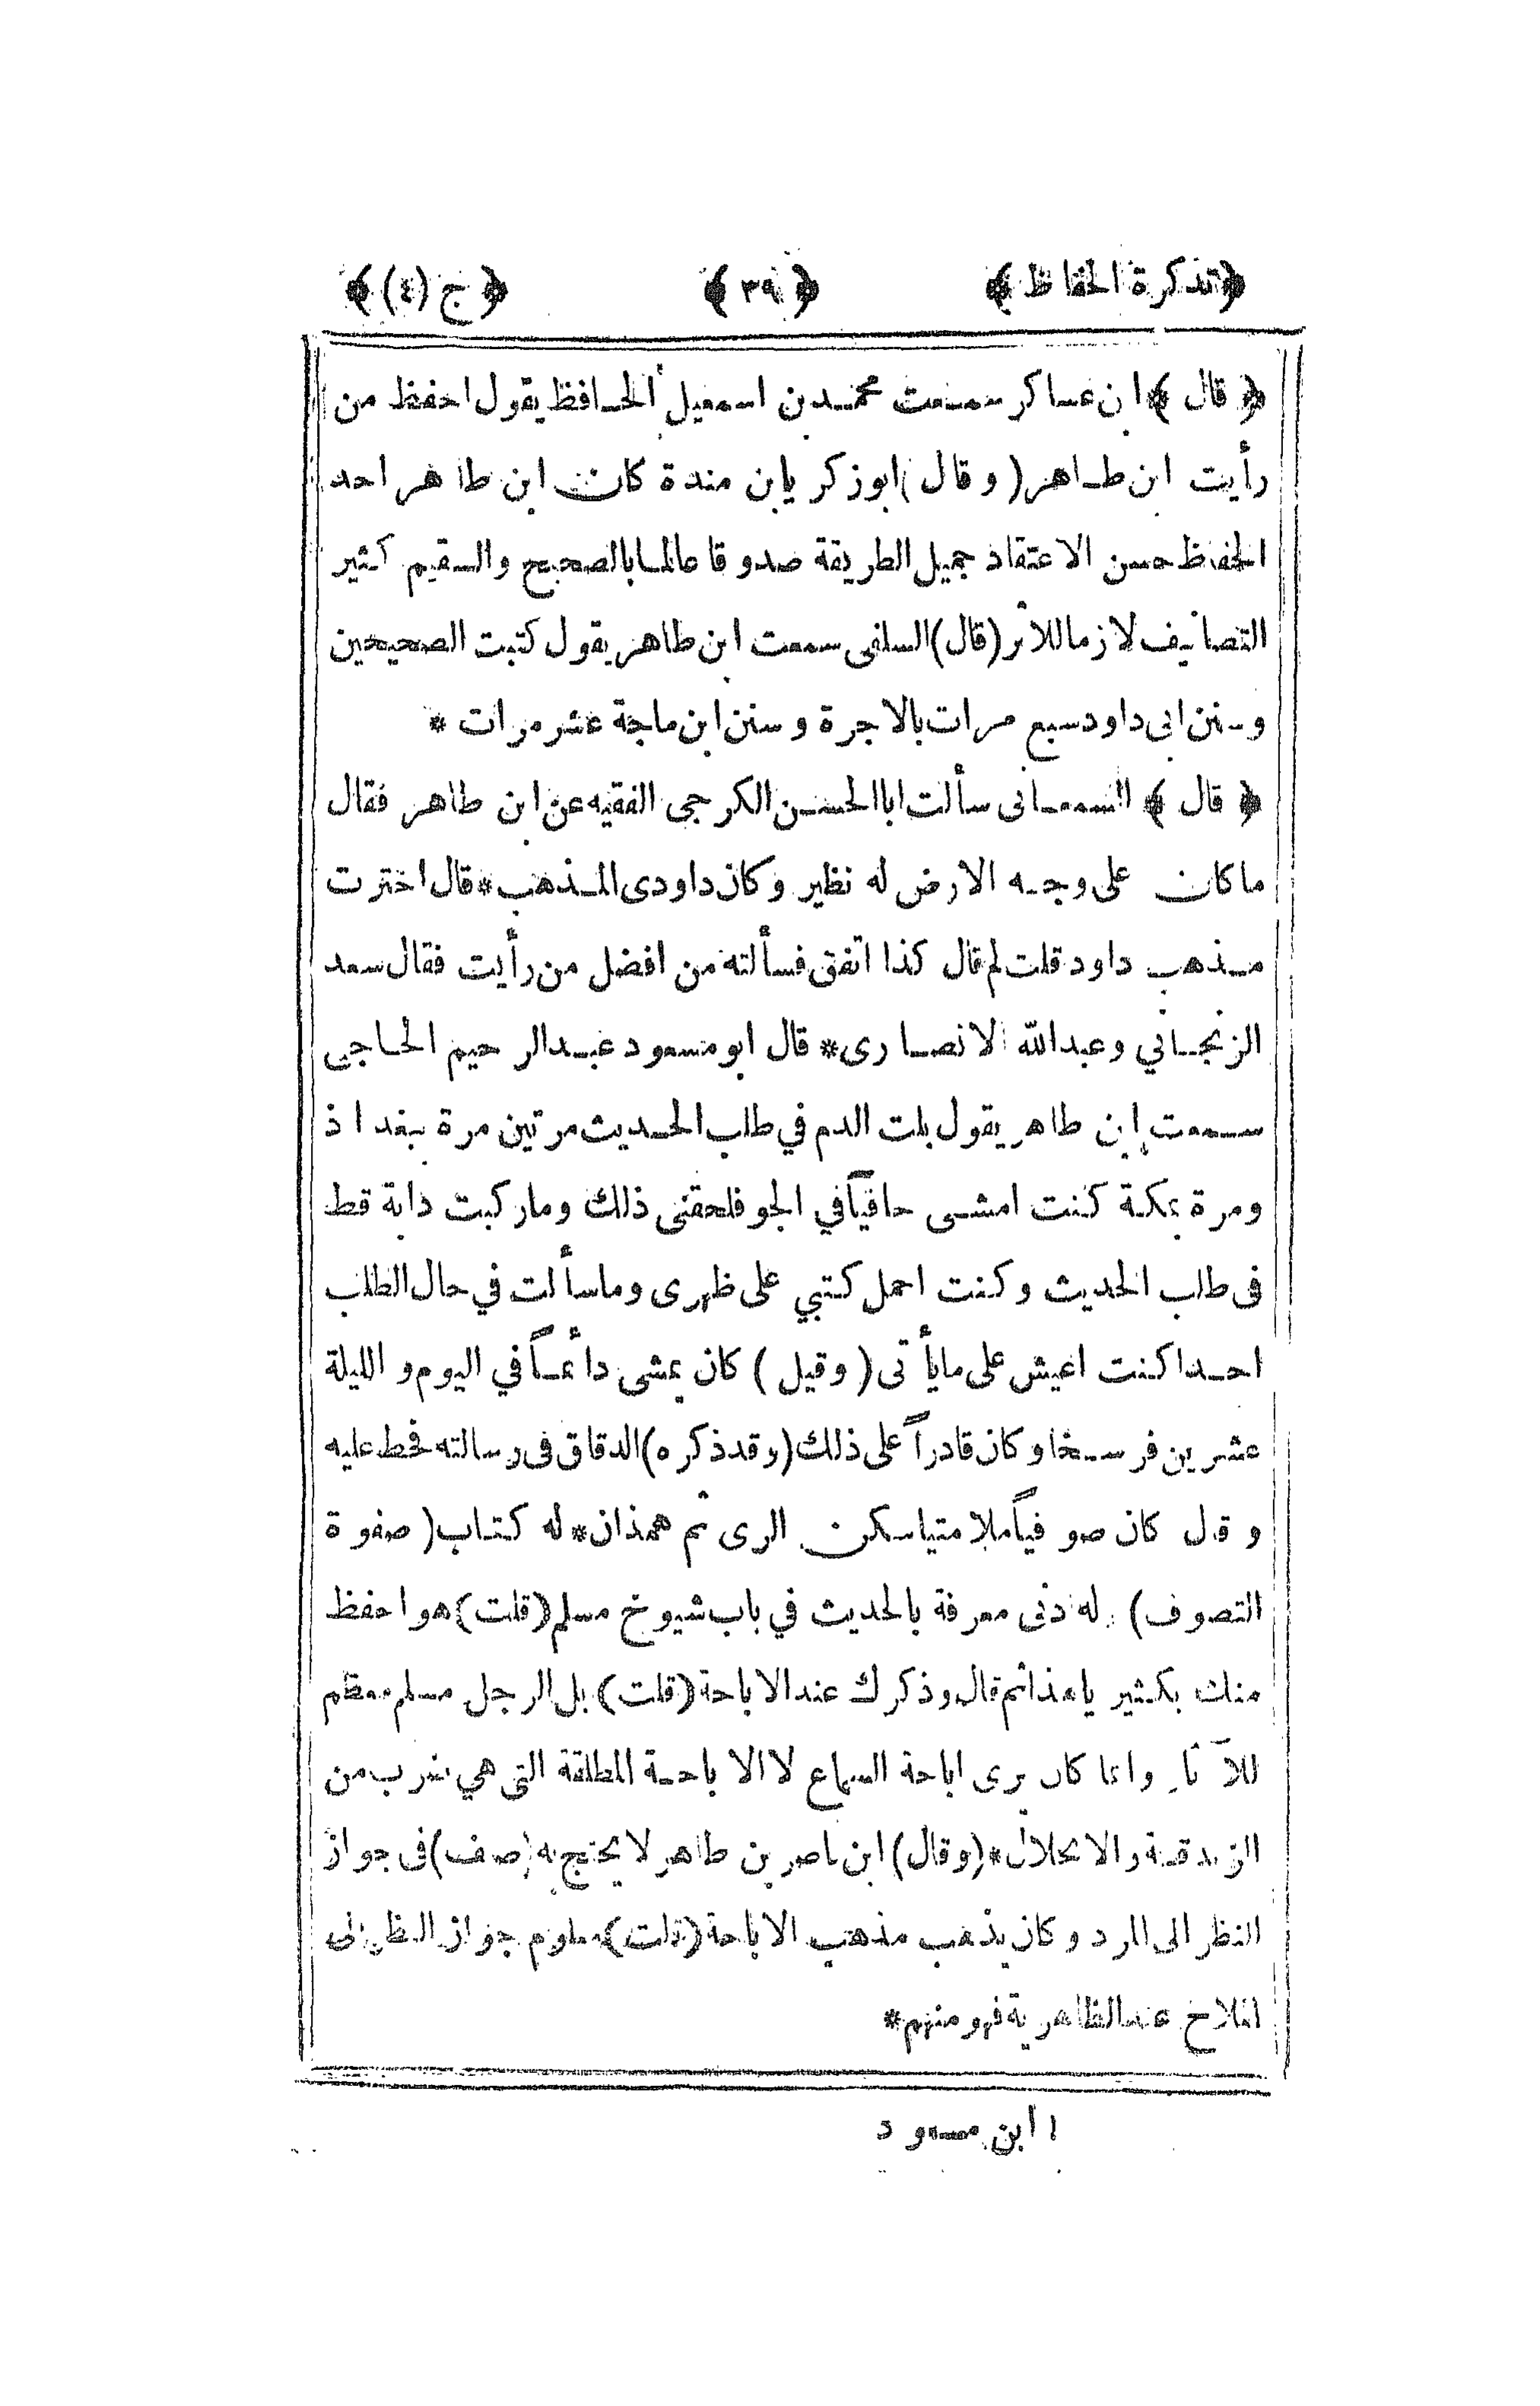 ﴿تذكرة الحفاظ﴾ ﴿٣٩﴾ ﴿ج (٤)﴾
﴿قال﴾ ابن عساكر سمعت محمد بن اسمعيل الحافظ يقول احفظ من
رأيت ابن طاهر (وقال) ابو زكريا بن مندة كان ابن طاهر احد
الحفاظ حسن الاعتقاد جميل الطريقة صدوقا عالما بالصحيح والسقيم كثير
التصانيف لازما للاثر (قال) السلفى سمعت ابن طاهر يقول كتبت الصحيحين
وسنن ابى داود سبع مرات بالاجرة وسنن ابن ماجة عشر مرات *
﴿قال﴾ السمعانى سألت ابا الحسن الكرجى الفقيه عن ابن طاهر فقال
ما كان على وجه الارض له نظير وكان داودى المذهب * قال اخترت
مذهب داود قلت لم قال كذا اتفق فسألته من افضل من رأيت فقال سعد
الزنجاني وعبد الله الانصارى * قال ابو مسعود عبد الرحيم الحاجي
سمعت ابن طاهر يقول بلت الدم في طلب الحديث مرتين مرة ببغداذ
ومرة بمكة كنت امشى حافياً في الجو فلحقنى ذلك وما ركبت دابة قط
فى طلب الحديث وكنت احمل كتبي على ظهرى وما سألت في حال الطلب
احدا كنت اعيش على ما يأتى (وقيل) كان يمشى دائماً في اليوم والليلة
عشرين فرسخا وكان قادراً على ذلك (وقد ذكره) الدقاق فى رسالته فحط عليه
وقال كان صوفياً ملامتيا سكن الرى ثم همذان * له كتاب (صفوة
التصوف) له دنى معرفة بالحديث في باب شيوخ مسلم (قلت) هو احفظ
منك بكثير يا هذا ثم قال وذكر لى عند الاباحة (قلت) بل الرجل مسلم معظم
للآثار وانما كان يرى اباحة السماع لا الاباحة المطلقة التى هي ضرب من
الزندقة والانحلال * (وقال) ابن ناصر بن طاهر لا يحتج به (صنف) فى جواز
النظر الى المرد وكان يذهب مذهب الاباحة (قلت) معلوم جواز النظر الى
الملاح عند الظاهرية فهو منهم *
ا ابن مسعود